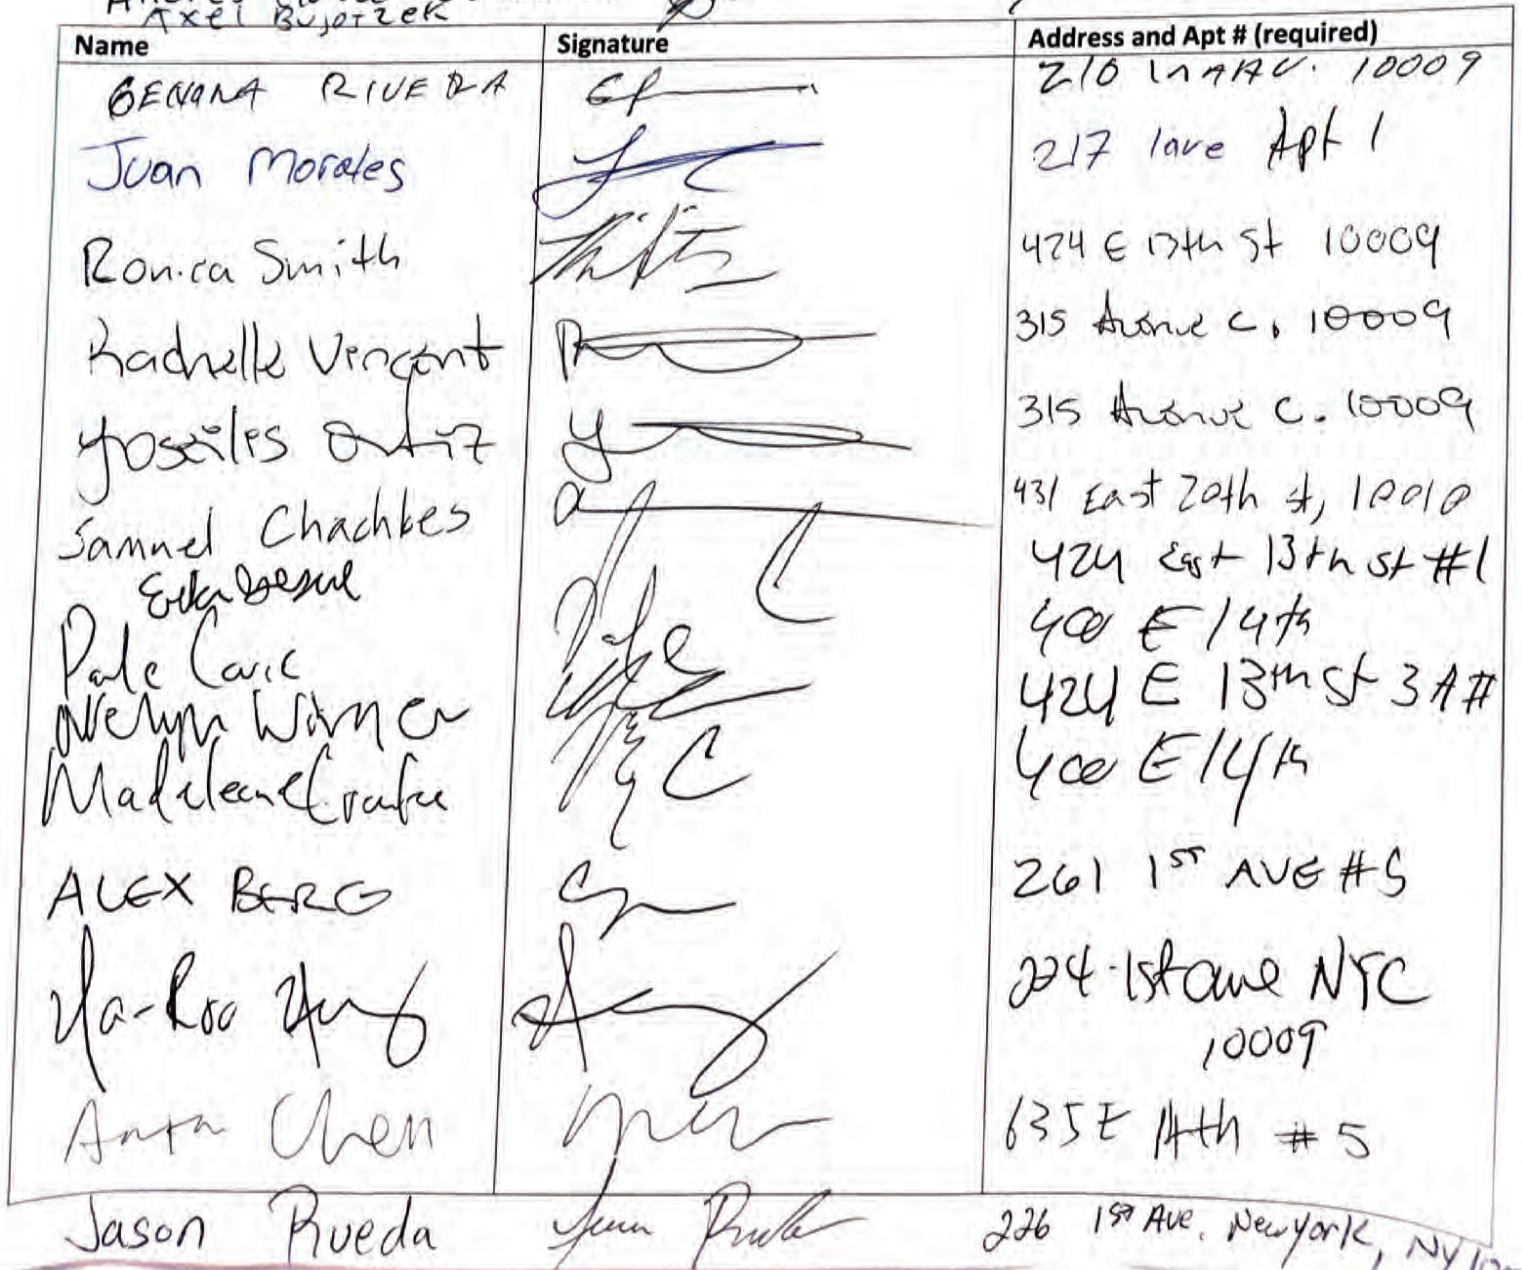 Axel Bujotzek
Name Signature Address and Apt # (required)
RIVERA 210 10009
Juan Morales 217 1ave Apt 1
Ronica Smith 424 E 13th St 10009
Rachelle Vincent 315 Avenue C. 10009
Ortiz 315 Avenue C. 10009
Samuel Chachkes 431 East 20th st, 10010
424 East 13th st #1
400 E 14th
424 E 13th St 3A#
Madeleine 400 E 14th
ALEX BERG 261 1ST AVE #5
Ya-Roo 224-1st ave NYC
10009
Chen 635 E 14th #5
Jason Rueda 226 1st Ave, New York, NY